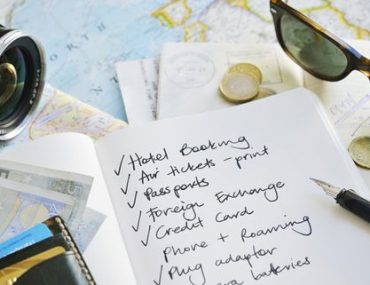 ✓ Hotel Booking
✓ Air tickets - print
✓ Passports
✓ Foreign Exchange
✓ Credit Card
Phone + Roaming
✓ Plug adaptor
batteries